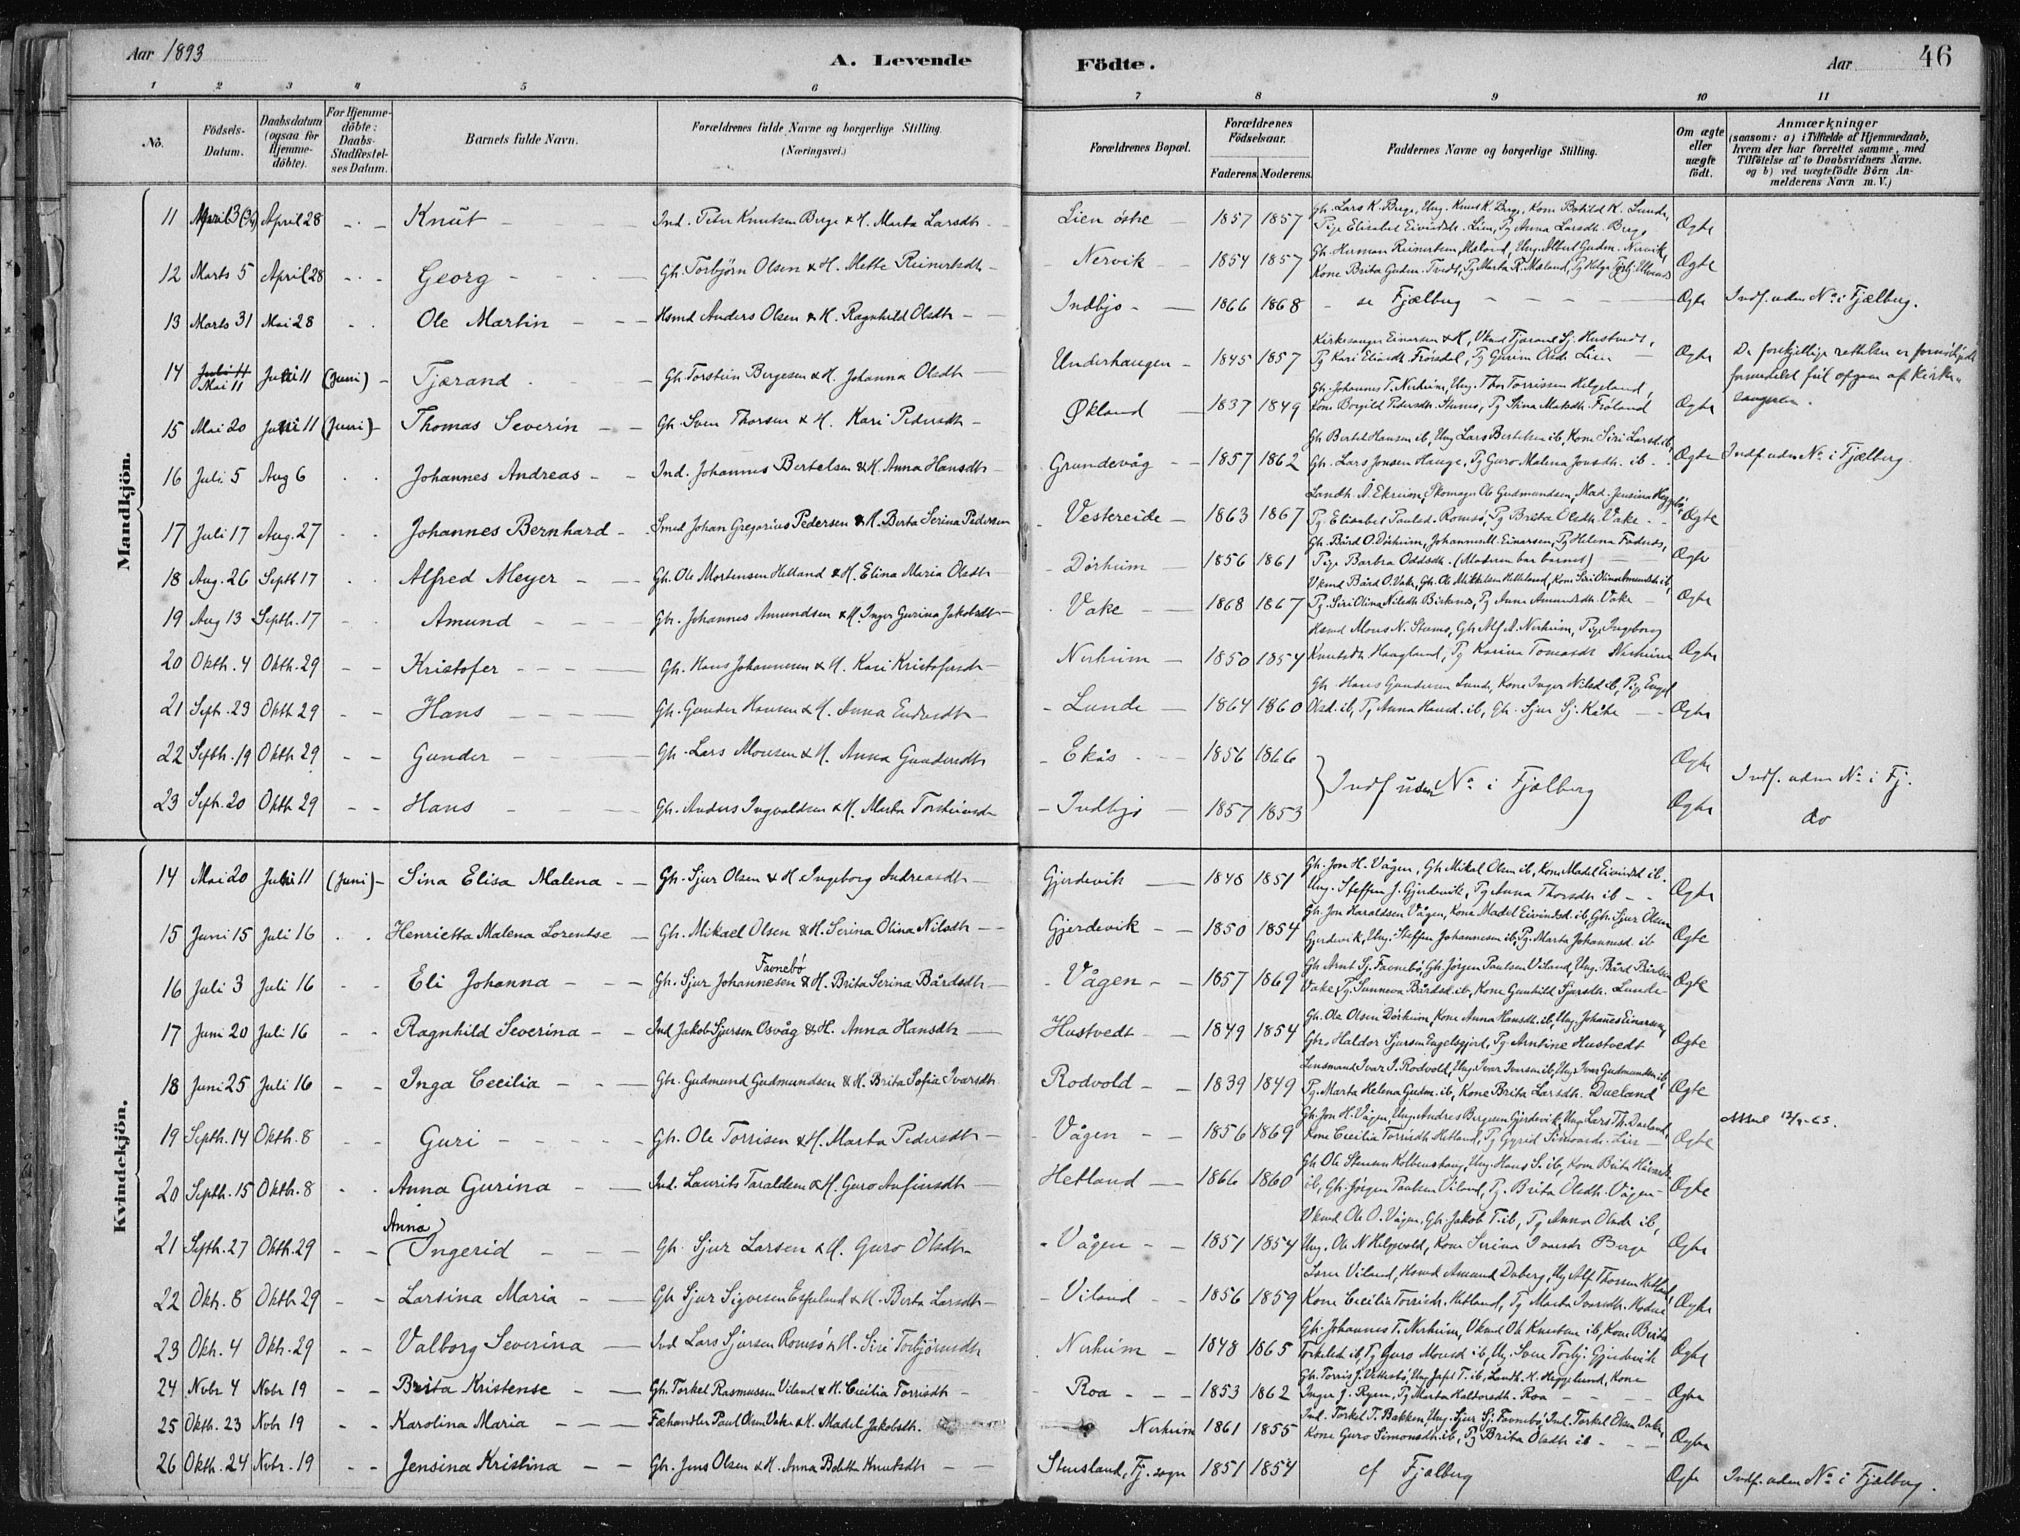 Aar 1893
A. Levende Födte.
Aar
46
1 2 3 4 5 6 7 8 9 10 11
No.
Födsels-Datum.
Daabsdatum (ogsaa for Hjemme-döbte).
For Hjemme-döbte: Daabs-Stadfæstel-ses Datum.
Barnets fulde Navn.
Forældrenes fulde Navne og borgerlige Stilling. (Næringsvei.)
Forældrenes Bopæl.
Forældrenes Födselsaar.
Faderens. Moderens.
Faddernes Navne og borgerlige Stilling.
Om ægte eller uægte födt.
Anmærkninger (saasom: a) i Tilfælde af Hjemmedaab, hvem der har forrettet samme, med Tilföielse af to Daabsvidners Navne. og b) ved uægtefödte Börn An-melderens Navn m. V.)
Mandkjön.
11 April 28 Knut Ind. Peter Knutsen Berge & H. Marta Larsdtr. Lien östre 1857 1857 Gh. Lars K. Berge, Ung. Knut K. Berge, Kone Botild K. Lunde, Pige Elisabet Eivindsdtr. Lien, Pg Anna Larsdtr. Berge Ægte
12 Marts 5 April 28 Georg Gh. Torbjörn Olsen & H. Mette Reinertsdtr Nervik 1854 1857 Gh. Herman Reinertsen Mæland, Ung. Albert Gudm. Nervik, Kone Brita Gudm. Tvedt, Pg Marta R. Mæland, Ægte
13 Marts 31 Mai 28 Ole Martin Hsmd Anders Olsen & H. Ragnhild Olsdtr Indbjo 1866 1868 se Fjælberg Ægte Indf. uden No i Fjælberg.
14 Mai 11 Juni 11 (Juni) Tjærand Gh. Torstein Bergesen & H. Johanna Olsdtr Underhaugen 1845 1857 Kirkesanger Einarsen & H, Tjærand Sj. Hustvedt, Pg Kari Eliasdtr. Pg Gurine Olsdr Lien Ægte De forskjellige rettelser er
15 Mai 20 Juni 11 (Juni) Thomas Severin Gh. Sven Thorsen & H. Kari Pedersdtr Økland 1837 1849 Gh. Johannes T. Nerheim, Ung. Thor Torrissen Helgeland, Kone Borgild Pedersdtr Pg Stina Ægte
16 Juli 5 Aug 6 Johannes Andreas Ind. Johannes Bertelsen & H. Anna Hansdtr Grundevåg 1857 1862 Gh Bertel Hansen ib, Ung Lars Bertelsen ib, Kone Siri Larsd. ib, Gh. Lars Jonsen Hauge, Pg Guro Malena Jonsdtr. ib Ægte Indf. uden No i Fjælberg
17 Juli 17 Aug. 27 Johannes Bernhard Smed Johan Gregorius Pedersen & H. Berta Serina Pedersen Vestreide 1863 1867 Landh. Å. Ekreim, Skomager Ole Gudmundsen, Mad. Jensina Pg. Elisabet Paulsd. Romsö, Pg Brita Olsdtr. Vake Ægte
18 Aug. 26 Septb 17 Alfred Meyer Gh. Ole Mortensen Hetland & H. Elina Maria Olsdtr Dörheim 1856 1861 Gh. Bård O. Dörheim, Johannes M. Einarsen, Pg Helena Pige Barbra Oddsdtr. (Moderen bar barnet) Ægte
19 Aug 13 Septb. 17 Amund Gh. Johannes Amundsen & H. Inger Gurina Jakobsdtr Vake 1868 1867 Bård O. Vake, Gh. Ole Mikkelsen Hetteland, Kone Siri Olina Amundsdtr ib, Pg. Siri Olina Nilsdtr Pg Anna Amundsdtr Vake Ægte
20 Oktb. 4 Oktb. 29 Kristofer Gh. Hans Johannesen & H. Kari Kristofersdtr Nerheim 1850 1854 Hsmd Mons N. Gh Alf A. Nerheim, Pige Ingeborg Knutsdtr Haagland, Pg Karina Tomasdr Nerheim Ægte
21 Sept. 23 Oktb 29 Hans Gh. Gunder Hansen & H. Anna Lunde 1864 1860 Gh. Hans Gundersen Lunde, Kone Inger Nilsd ib, Pige Engel Olsd. ib, Pg Anna Hansd. ib, Gh. Sjur Sj. Kåte Ægte
22 Septb. 19 Oktb 29 Gunder Gh. Lars Monsen & H. Anna Gundersdtr Ekås 1856 1866 Indf uden No i Fjælberg Ægte Indf. uden No i Fj.
23 Sept. 20 Oktb 29 Hans Gh. Anders Ingvaldsen & H. Marta Indbjo 1857 1853 Ægte do
Kvindekjön.
14 Mai 20 Juni 11 (Juni) Sina Elisa Malena Gh. Sjur Olsen & H. Ingeborg Andreasdtr Gjerdevik 1848 1851 Gh. Jon H. Vågen, Gh Mikal Olsen ib, Kone Madel Eivindsd ib. Ung. Steffen J. Gjerdevik, Pg Anna Thorsdtr ib Ægte
15 Juni 15 Juli 16 Henrietta Malena Lorentse Gh. Mikael Olsen & H. Serina Olina Nilsdtr Gjerdevik 1850 1854 Gh. Jon Haraldsen Vågen, Kone Madel Eivindsd. ib, Gh. Sjur Olsen Gjerdevik, Ung. Steffen Johannesen ib, Pg. Marta Johannesd. ib Ægte
16 Juli 3 Juli 16 Eli Johanna Gh. Sjur Johannesen Favnebö & H. Brita Serina Bårdsdtr Vågen 1857 1869 Gh Arnt Sj. Favnebö, Gh. Jörgen Paulsen Viland, Ung. Bård Vake, Pg. Sunneva Bårdsd. ib, Kone Gunhild Sjursdtr. Lunde Ægte
17 Juni 20 Juli 16 Ragnhild Severina Ind Jakob Sjursen Osvåg & H. Anna Hansdtr Hustvedt 1849 1854 Gh. Ole Olsen Dörheim, Kone Anna Hansdtr. ib, Ung. Johanes Einarsen, Gbr. Haldor Sjursen Engelsgjerd, Pg Arntine Hustvedt Ægte
18 Juni 25 Juli 16 Inga Cecilia Gh. Gudmund Gudmundsen & H. Brita Sofia Ivarsdtr. Rodvold 1839 1849 Lensmand Ivar I. Rodvold, Ung. Ivar Ivarsen ib, Ung. Ivar Gudmundsen ib, Pg. Marta Helena Gudm. ib, Kone Brita Larsdtr. Dueland Ægte
19 Septb. 14 Oktb. 8 Guri Gh. Ole Torrisen & H. Marta Pedersdtr Vågen 1856 1869 Gh. Jon H. Vågen, Ung. Andres Bergesen Gjerdevik, Ung. Lars Th. Kone Cecilia Torrisdtr Hetland, Pg Gyrid Lien Ægte
20 Septb. 15 Oktb. 8 Anna Gurina Ind. Laurits Taraldsen & H. Guro Anfinsdtr Hetland 1866 1860 Gh. Ole Stensen Kolbenshaug, Ung. Hans S. ib, Kone Brita ib, Gh. Jörgen Paulsen Viland, Pg. Brita Olsdtr. Vågen Ægte
21 Septb. 27 Oktb. 29 Anna Ingerid Gh. Sjur Larsen & H. Guro Olsdtr Vågen 1851 1854 Ole O. Vågen, Gh. Jakob T. ib, Pg Anna Olsdr ib, Ung. Ole N Helgevold, Kone Serina Ivarsdr Berge Ægte
22 Okt. 8 Oktb 29 Larsina Maria Gh Sjur Sigvesen Espeland & H. Berta Larsdtr Viland 1856 1859 Viland, Hsmd Amund Ung Alf Thorsen Hetland, Kone Cecilia Torrisdr. Hetland, Pg Marta Ivarsdtr. Ægte
23 Okt. 4 Oktb. 29 Valborg Severina Ind Lars Sjursen Romsö & H. Siri Torbjörnsdtr Nerheim 1848 1865 Gh. Johannes T. Nerheim, Ole Knutsen ib, Kone Berta Torkelsd ib, Pg Guro Monsd ib, Ung. Sven Torbj. Gjerdevik Ægte
24 Novbr 4 Novbr 19 Brita Kristense Gh. Torkel Rasmussen Viland & H. Cecilia Torrisdtr Roa 1853 1862 Gh. Torris J. Ung Jafet T. ib, Landh. K. Heggelund, Kone Inger J. Ryen, Pg Marta Roa Ægte
25 Oktb. 23 Novbr 19 Karolina Maria Fæhandler Paul Olsen Vake & H. Madel Jakobsdtr. Nerheim 1861 1855 Ind. Torkel T. Bakken, Ung. Sjur Sj. Favnebö, Ind. Torkel Olsen Vake, Kone Guro Simonsdtr. ib, Pg Brita Olsdtr ib Ægte
26 Oktb. 24 Novbr. 19 Jensina Kristina Gh. Jens Olsen & H. Anna Bolette Knutsdtr Stusland, Fj. sogn 1851 1854 cf Fjælberg Ægte Indf. uden No i Fjælberg.